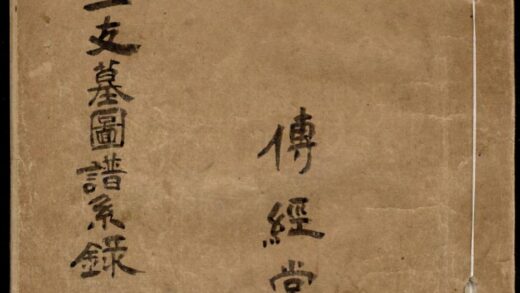 傳經堂
支墓圖譜系錄